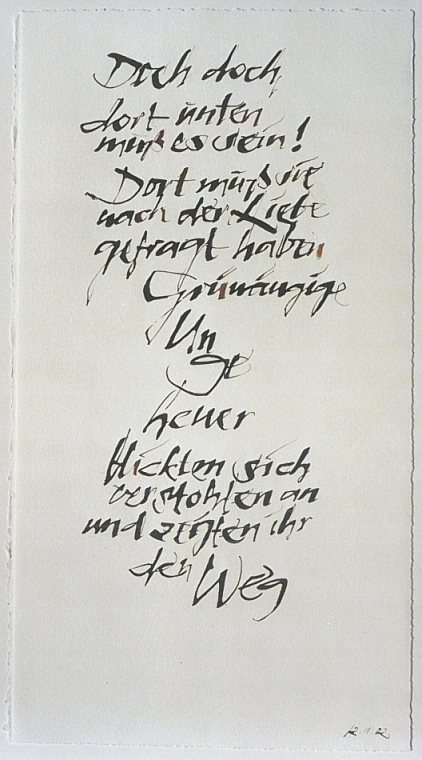 Doch doch
dort unten
muß es sein!
Dort muß sie
nach der Liebe
gefragt haben
Grünäugige
Un
ge
heuer
blickten sich
verstohlen an
und zeigten ihr
den Weg